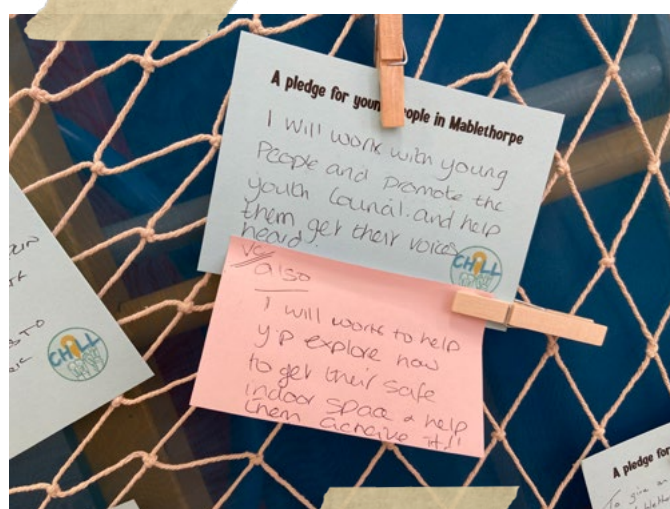 A pledge for young people in Mablethorpe
I will work with young
People and promote the
youth Council. and help
them get their voices
heard
CHILL
also
I will work to help
y.p explore how
to get their safe
indoor space & help
them achieve it!!
CHILL
A pledge for
To give an